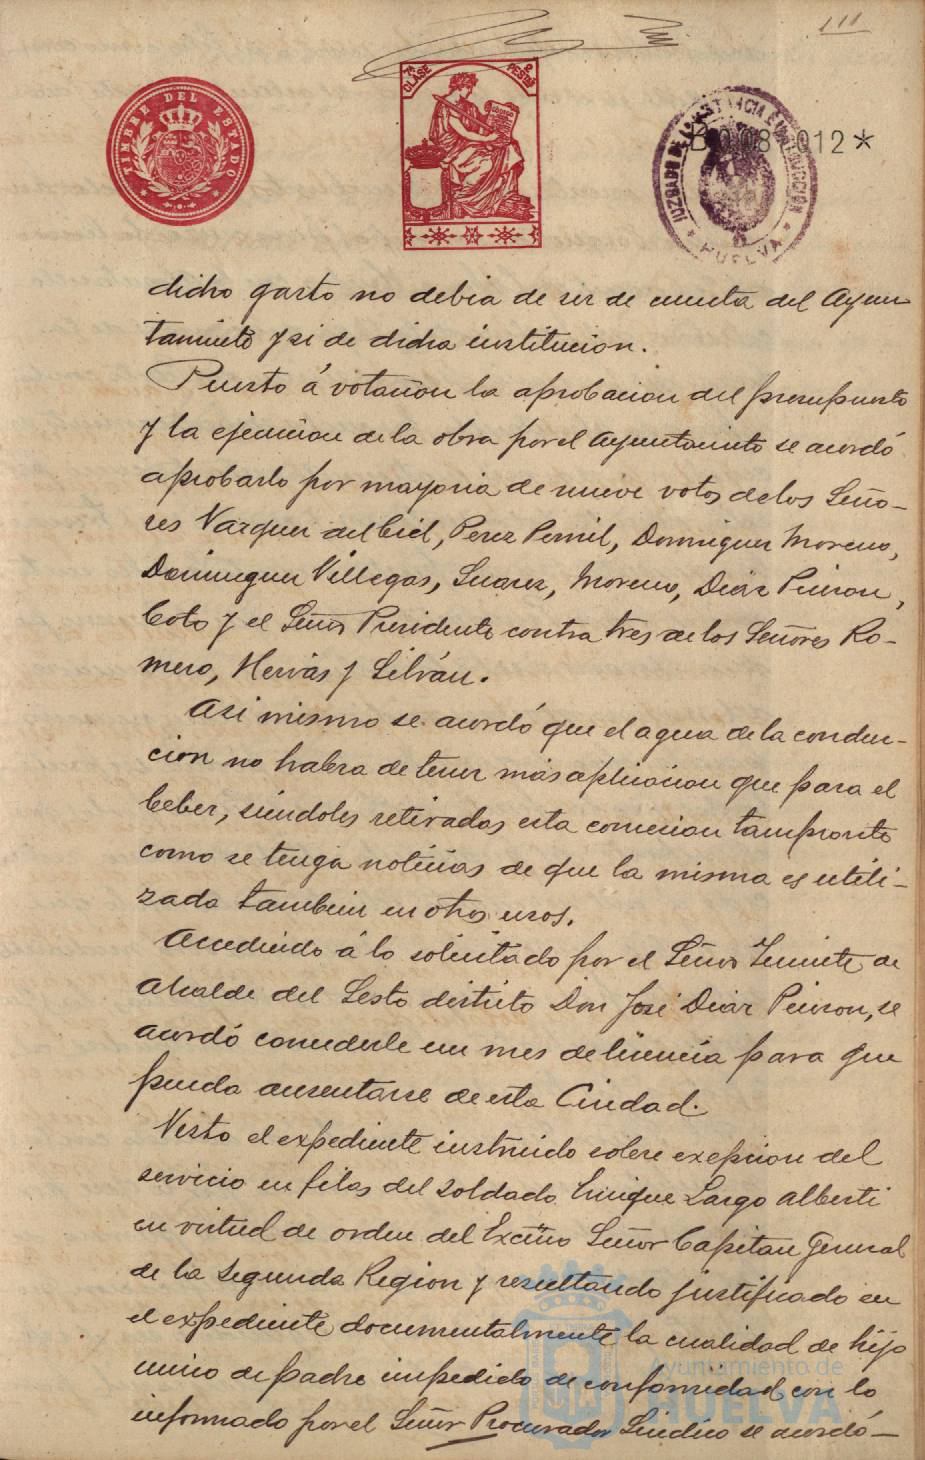 111
TIMBRE DEL ESTADO
7ª CLASE
2 PESTAS
B.0.008.012*
JUZGADO DE 1ª INSTANCIA E INSTRUCCIÓN
* HUELVA *
dicho gasto no debia de ser de cuenta del Ayun-
tamiento y si de dicha institucion.
Puesto á votacion la aprobacion del presupuesto
y la ejecucion de la obra por el Ayuntamiento se acordó
aprobarlo por mayoria de nueve votos de los Seño-
res Vazquez del Cid, Perez Pernil, Dominguez Moreno,
Dominguez Villegas, Suarez, Moreno, Diaz Pinzon,
Coto y el Señor Presidente contra tres de los Señores Ro-
mero, Hervás y Silván.
Asi mismo se acordó que el agua de la conduc-
cion no habra de tener más aplicacion que para el
beber, siendoles retirados esta concesion tampronto
como se tenga noticias de que la misma es utili-
zada tambien en otros usos.
Accediendo á lo solicitado por el Señor Teniente de
Alcalde del Sesto distrito Don José Diaz Pinzon, se
acordó concederle un mes de licencia para que
pueda ausentarse de esta Ciudad.
Visto el expediente instruido sobre exepcion del
servicio en filas del soldado Enrique Largo Alberti
en virtud de orden del Excmo Señor Capitan General
de la Segunda Region y resultando justificado en
el expediente documentalmente la cualidad de hijo
unico de padre impedido de conformidad con lo
informado por el Señor Procurador Sindico se acordó-
Ayuntamiento de
HUELVA